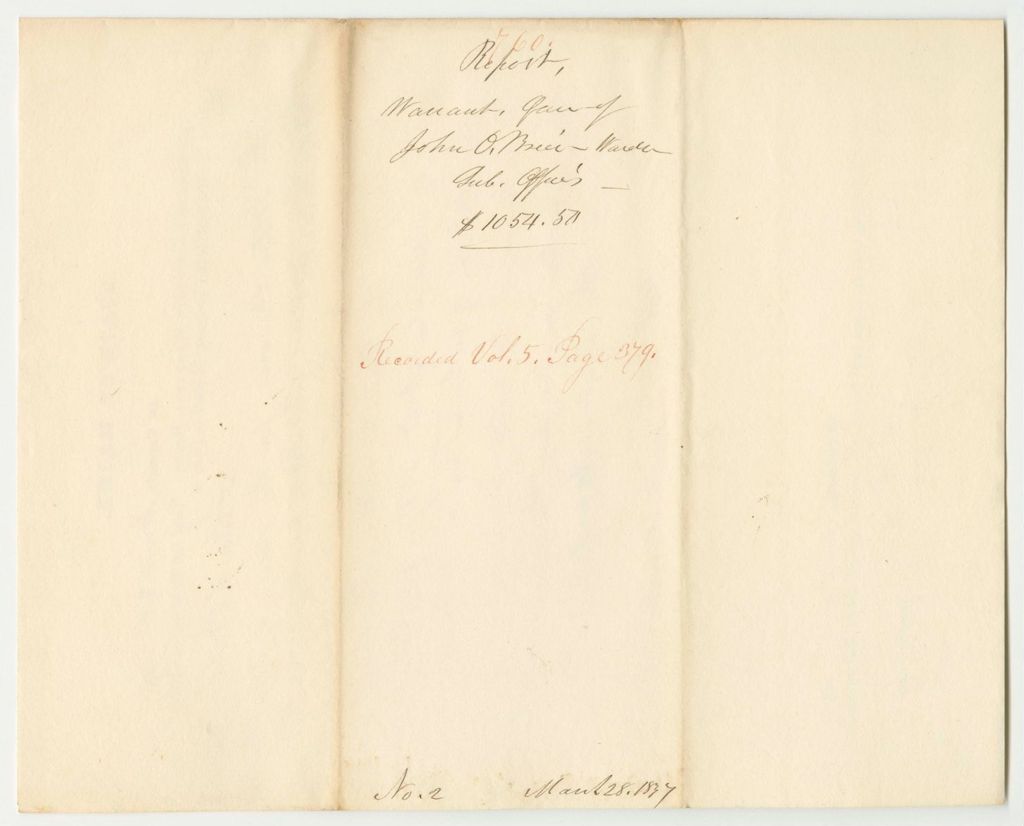 760.
Report,
Warrant, favr of
John O'Brien - Warden
Sub. Officers
$1054.50
Recorded Vol. 5. Page 379.
No. 2 March 28. 1837